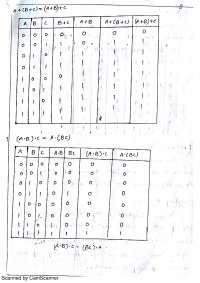 A+(B+C)=(A+B)+C
A B C B+C A+B A+(B+C) (A+B)+C
0 0 0 0 0 0 0
0 0 1 1 0 1 1
0 1 0 1 1 1 1
0 1 1
1 0 0
1 0 1
1 1 0
1 1 1
(A·B)·C = A·(BC)
A B C A·B BC (A·B)·C A·(BC)
0 0 0 0 0 0 0
0 0 1 0 0 0 0
0 1 0 0 0 0 0
0 1 1 0 1 0 0
1 0 0 0 0 0 0
1 0 1 0 0 0 0
1 1 0 1 0 0 0
1 1 1 1 1 1 1
(A·B)·C = (BC)·A
Scanned by CamScanner